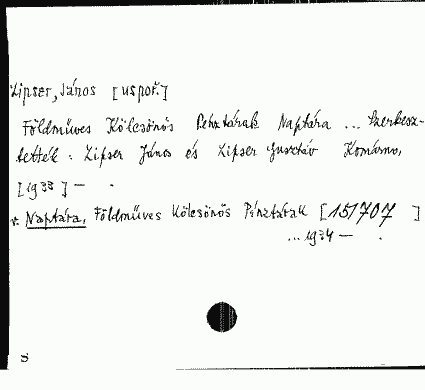 Lipser, János [uspoř.]
Földműves Kölcsönös Pénztárak Naptára ... Szerkesz-
tették: Lipser János és Lipser Gusztáv Komárno,
[1933] — .
v. Naptára, Földműves Kölcsönös Pénztárak [151707 ]
... 1934 — .
S